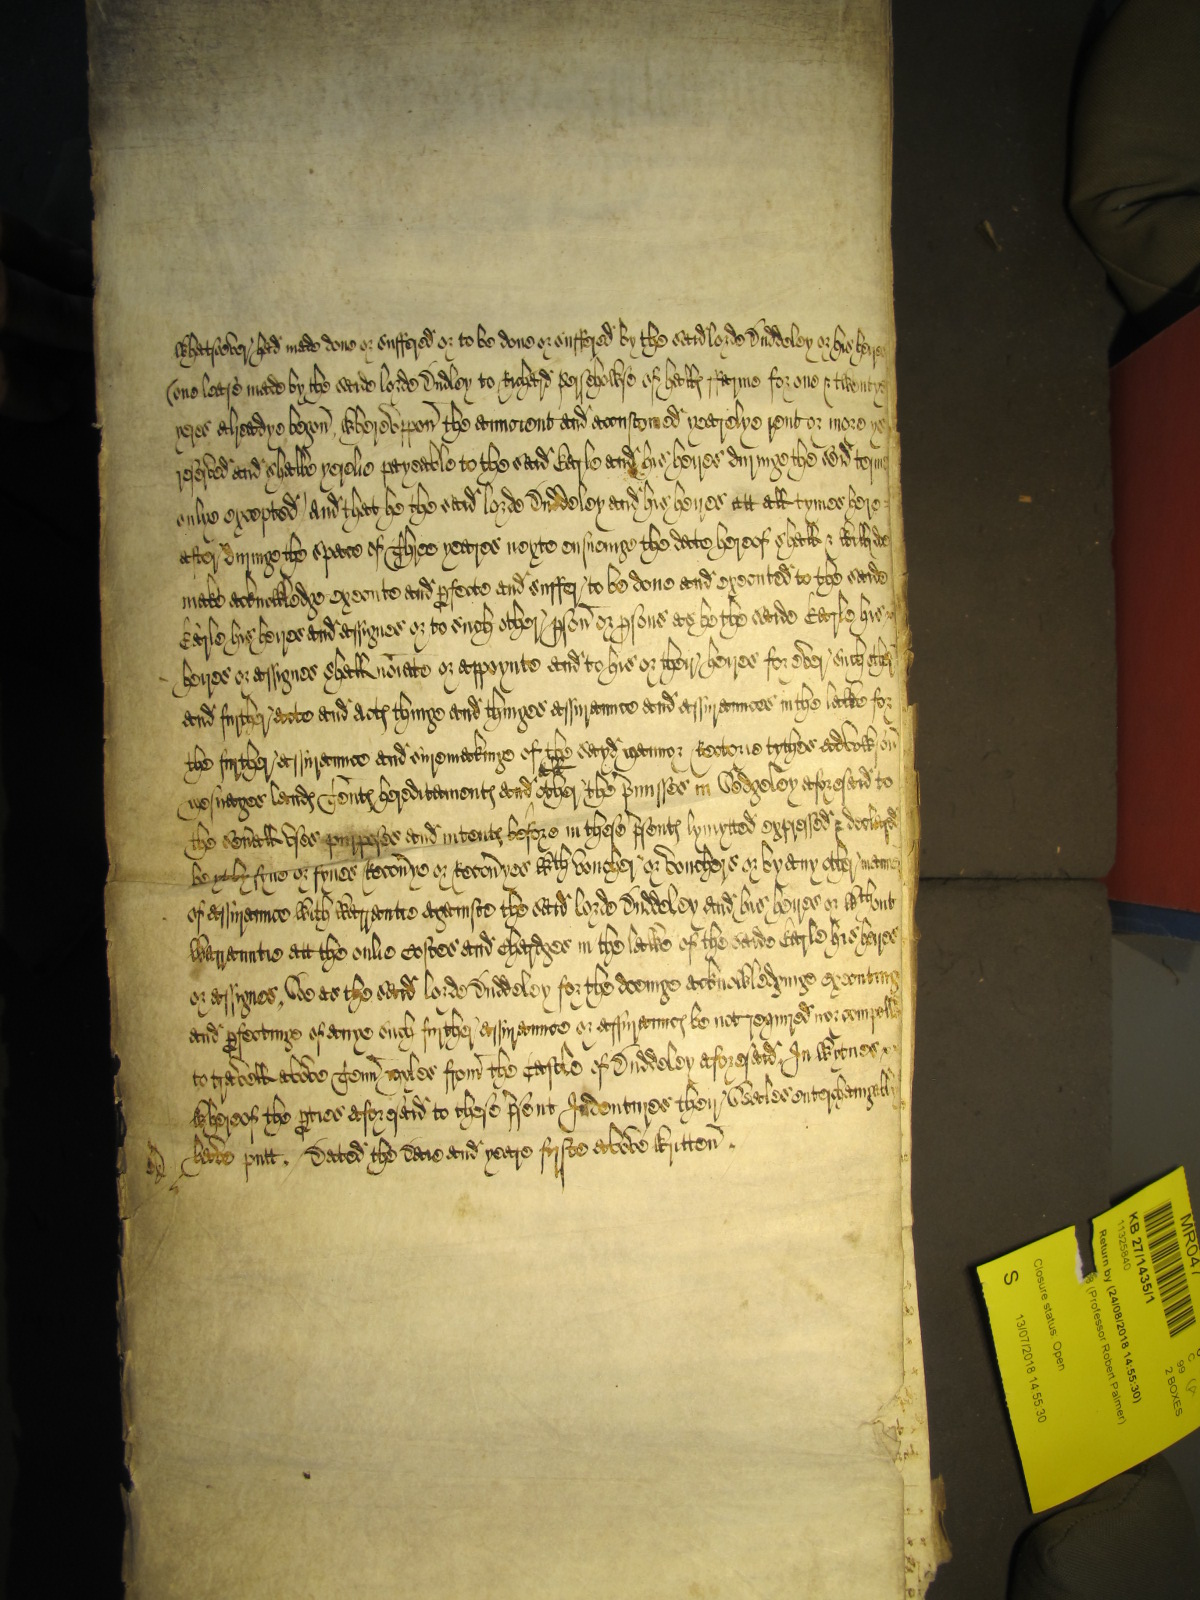 Whatsoever had made done or suffered or to be done or suffered by the said lorde Duddeley or his heires
(one lease made by the saide lorde Dudley to Richard persehowse of hall fferme for one & twentye
yeres alreadye begon, Whereuppon the auncient and accustomed yearelye rent or more ys
reserved and shalbe yerelie payeable to the said Earle and his heires duringe the said terme
onlie excepted / And that he the said lorde Duddeley and his heires att all tymes here
after duringe the space of Three yeares nexte ensueinge the date hereof shall & will do
make acknowledge execute and pfecte and suffer to be done and executed to the saide
Earle his heires and assignes or to such other pson or psons as he the saide Earle his
heires or assignes shall noiate or appoynte and to his or their heires for ever such other
and further acte and acts thinge and thinges assurance and assurances in the lawe for
the further assurance and suremakinge of the sayd mannor Rectorie tythes advowson
mesuages lands Tents hereditaments and other the pmisses in Sedgeley aforesaid to
the severall uses purposes and intents before in these psents lymytted expressed & declared
be yt by fyne or fynes Recovye or Recovyes wth voucher or vouchers or by any other manner
of assurance with warrantie againste the said lorde Duddeley and his heires or wthout
warrauntie att the onlie costes and chardges in the lawe of the saide Earle his heires
or assignes, Soe as the said lorde Duddeley for the doeinge acknowledginge executing
and pfectinge of anye such further assurance or assurancs be not required nor compelled
to travell above Tenn myles from the Castle of Duddeley aforesaid, In Witnes
whereof the pties aforesaid to these psent Indentures their Seales enterchangeably
have putt. Dated the daie and yeare fyrste above written.
MR047
KB 27/1435/1
11325640
Return by (24/08/2018 14:55:30)
(Professor Robert Palmer)
Closure status: Open
S 13/07/2018 14:55:30
99
2 BOXES